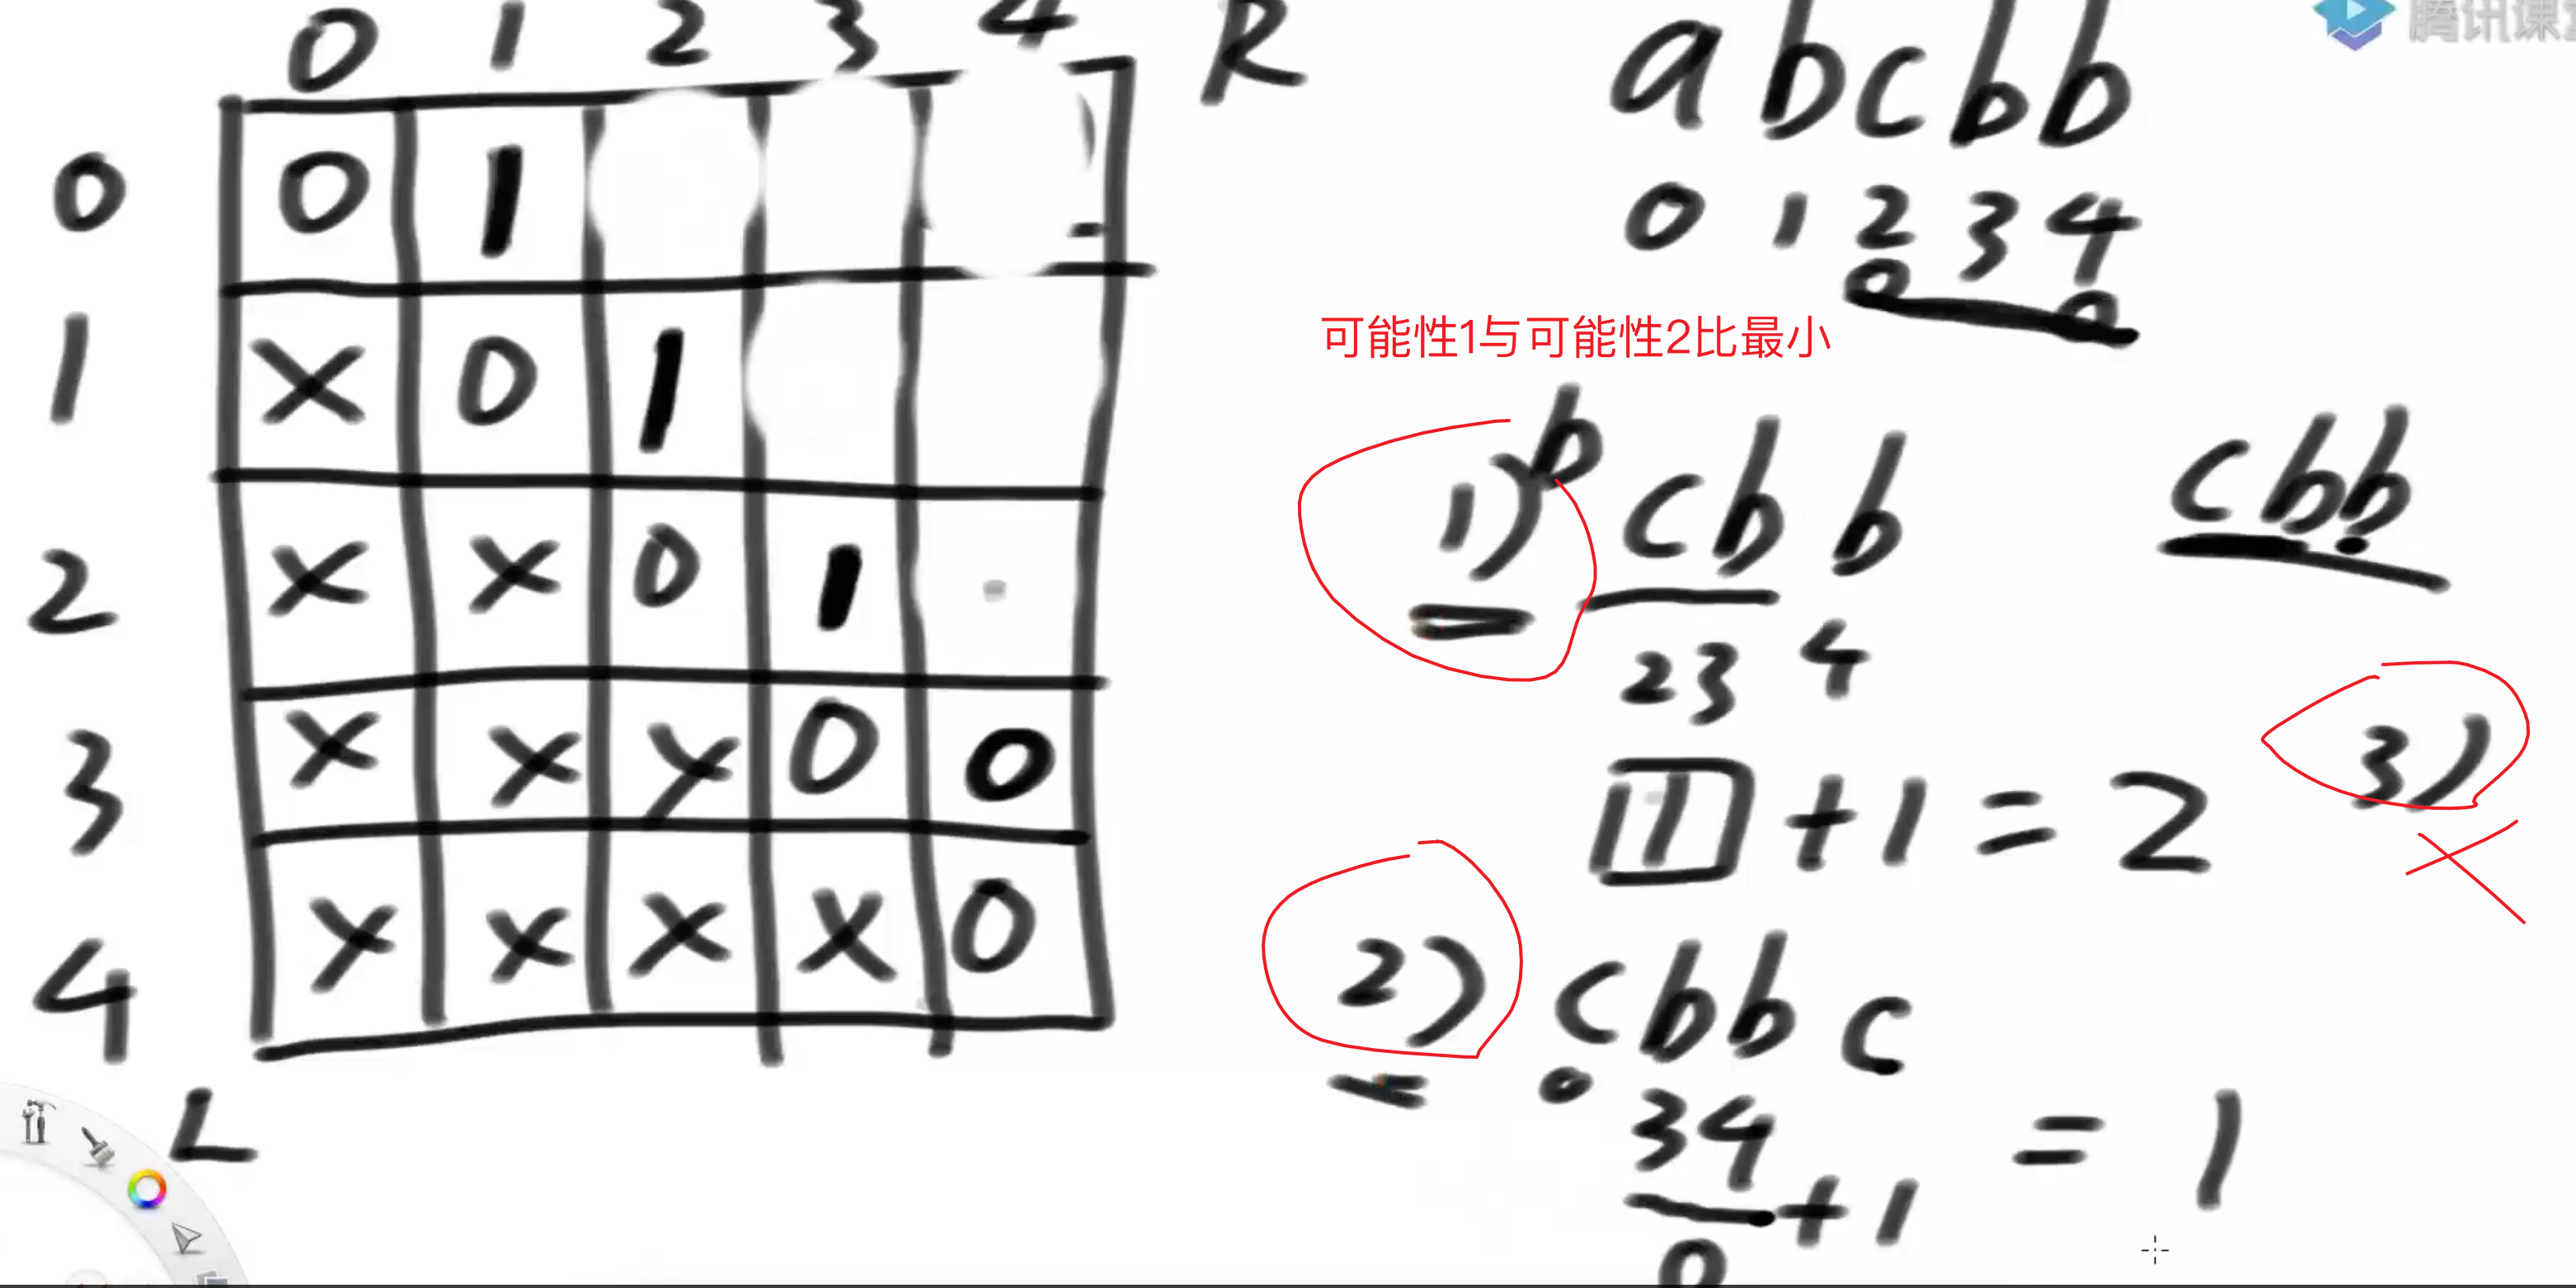 0 1 2 3 4 R
0 0 1
1 X 0 1
2 X X 0 1
3 X X X 0 0
4 X X X X 0
L
腾讯课
abcbb
0 1 2 3 4
可能性1与可能性2比最小
1) b cb b
2 3 4
1 + 1 = 2
cbb
3)
2) cbb c
3 4
0 + 1 = 1